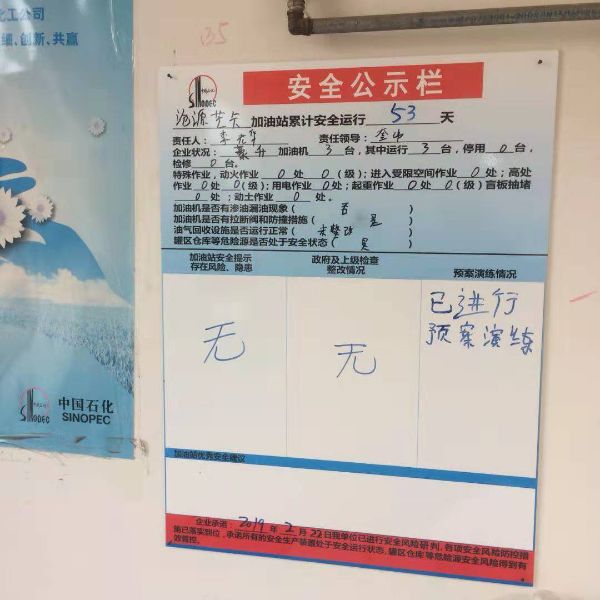 化工公司
细、创新、共赢
35
中国石化
SINOPEC
安全公示栏
SINOPEC
加油站累计安全运行 53 天
责任人: 责任领导:
企业状况: 加油机 3 台,其中运行 3 台,停用 0 台,
检修 0 台。
特殊作业,动火作业 0 处 0 (级);进入受限空间作业 0 处;高处
作业 0 处 0 (级);用电作业 0 处;起重作业 0 处 0 (级)盲板抽堵
0 处;动土作业 0 处。
加油机是否有渗油漏油现象( 否 )
加油机是否有拉断阀和防撞措施( 是 )
油气回收设施是否运行正常( 未整改 )
罐区仓库等危险源是否处于安全状态( 是 )
加油站安全提示
存在风险、隐患
无
政府及上级检查
整改情况
无
预案演练情况
已进行
预案演练
加油站优秀安全建议
企业承诺: 2019 年 2 月 22 日我单位已进行安全风险研判,各项安全风险防控措
施已落实到位,承诺所有的安全生产装置处于安全运行状态,罐区仓库等危险源安全风险得到有
效管控。
SINOPEC